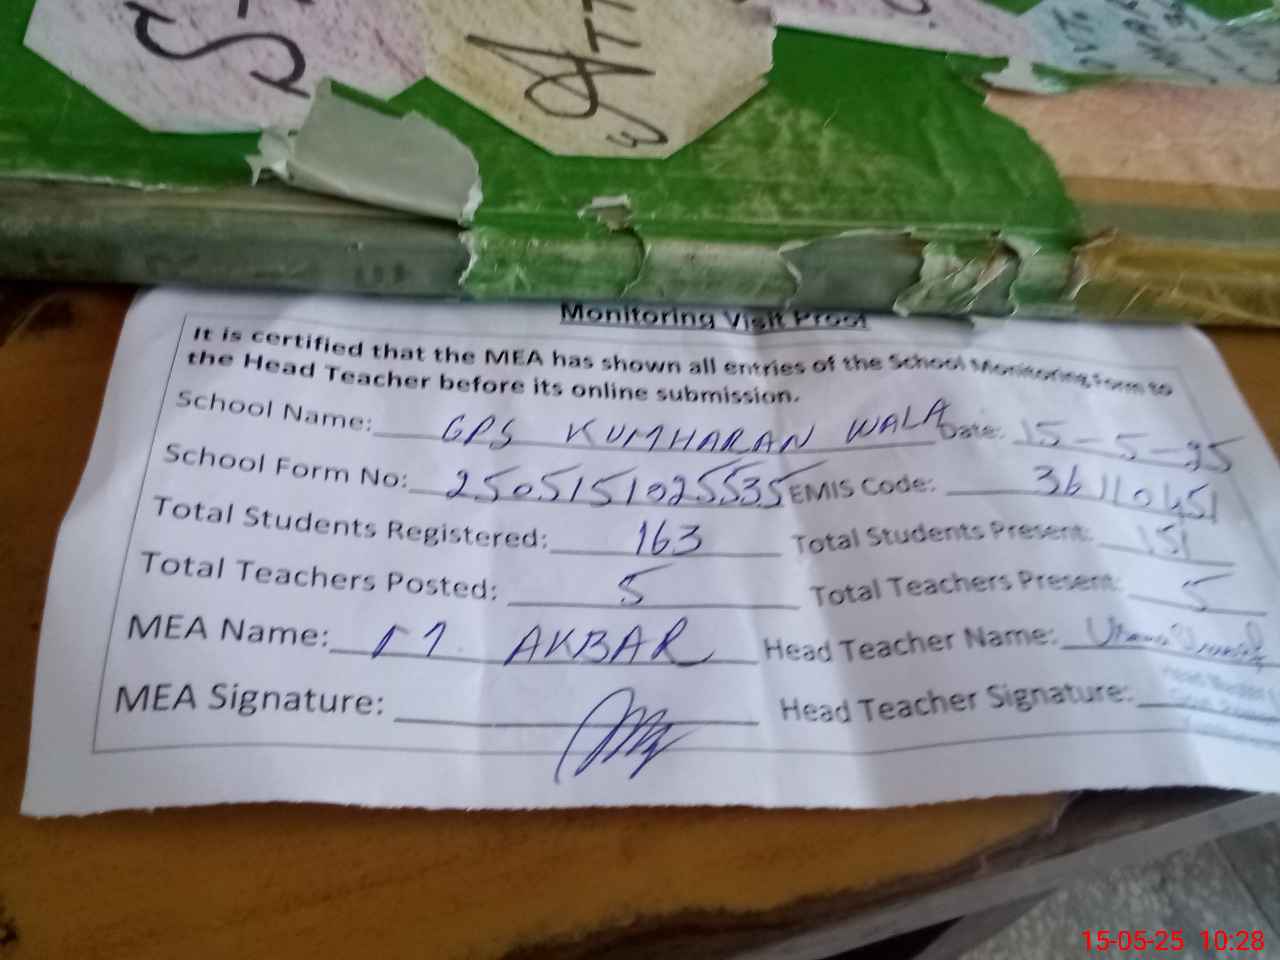 S
ATT
Monitoring Visit Proof
It is certified that the MEA has shown all entries of the School Monitoring Form to
the Head Teacher before its online submission.
School Name: GPS KUMHARAN WALA Date: 15-5-25
School Form No: 2505151025535 EMIS Code: 36110451
Total Students Registered: 163 Total Students Present: 151
Total Teachers Posted: 5 Total Teachers Present: 5
MEA Name: M. AKBAR Head Teacher Name:
MEA Signature: Head Teacher Signature:
15-05-25 10:28